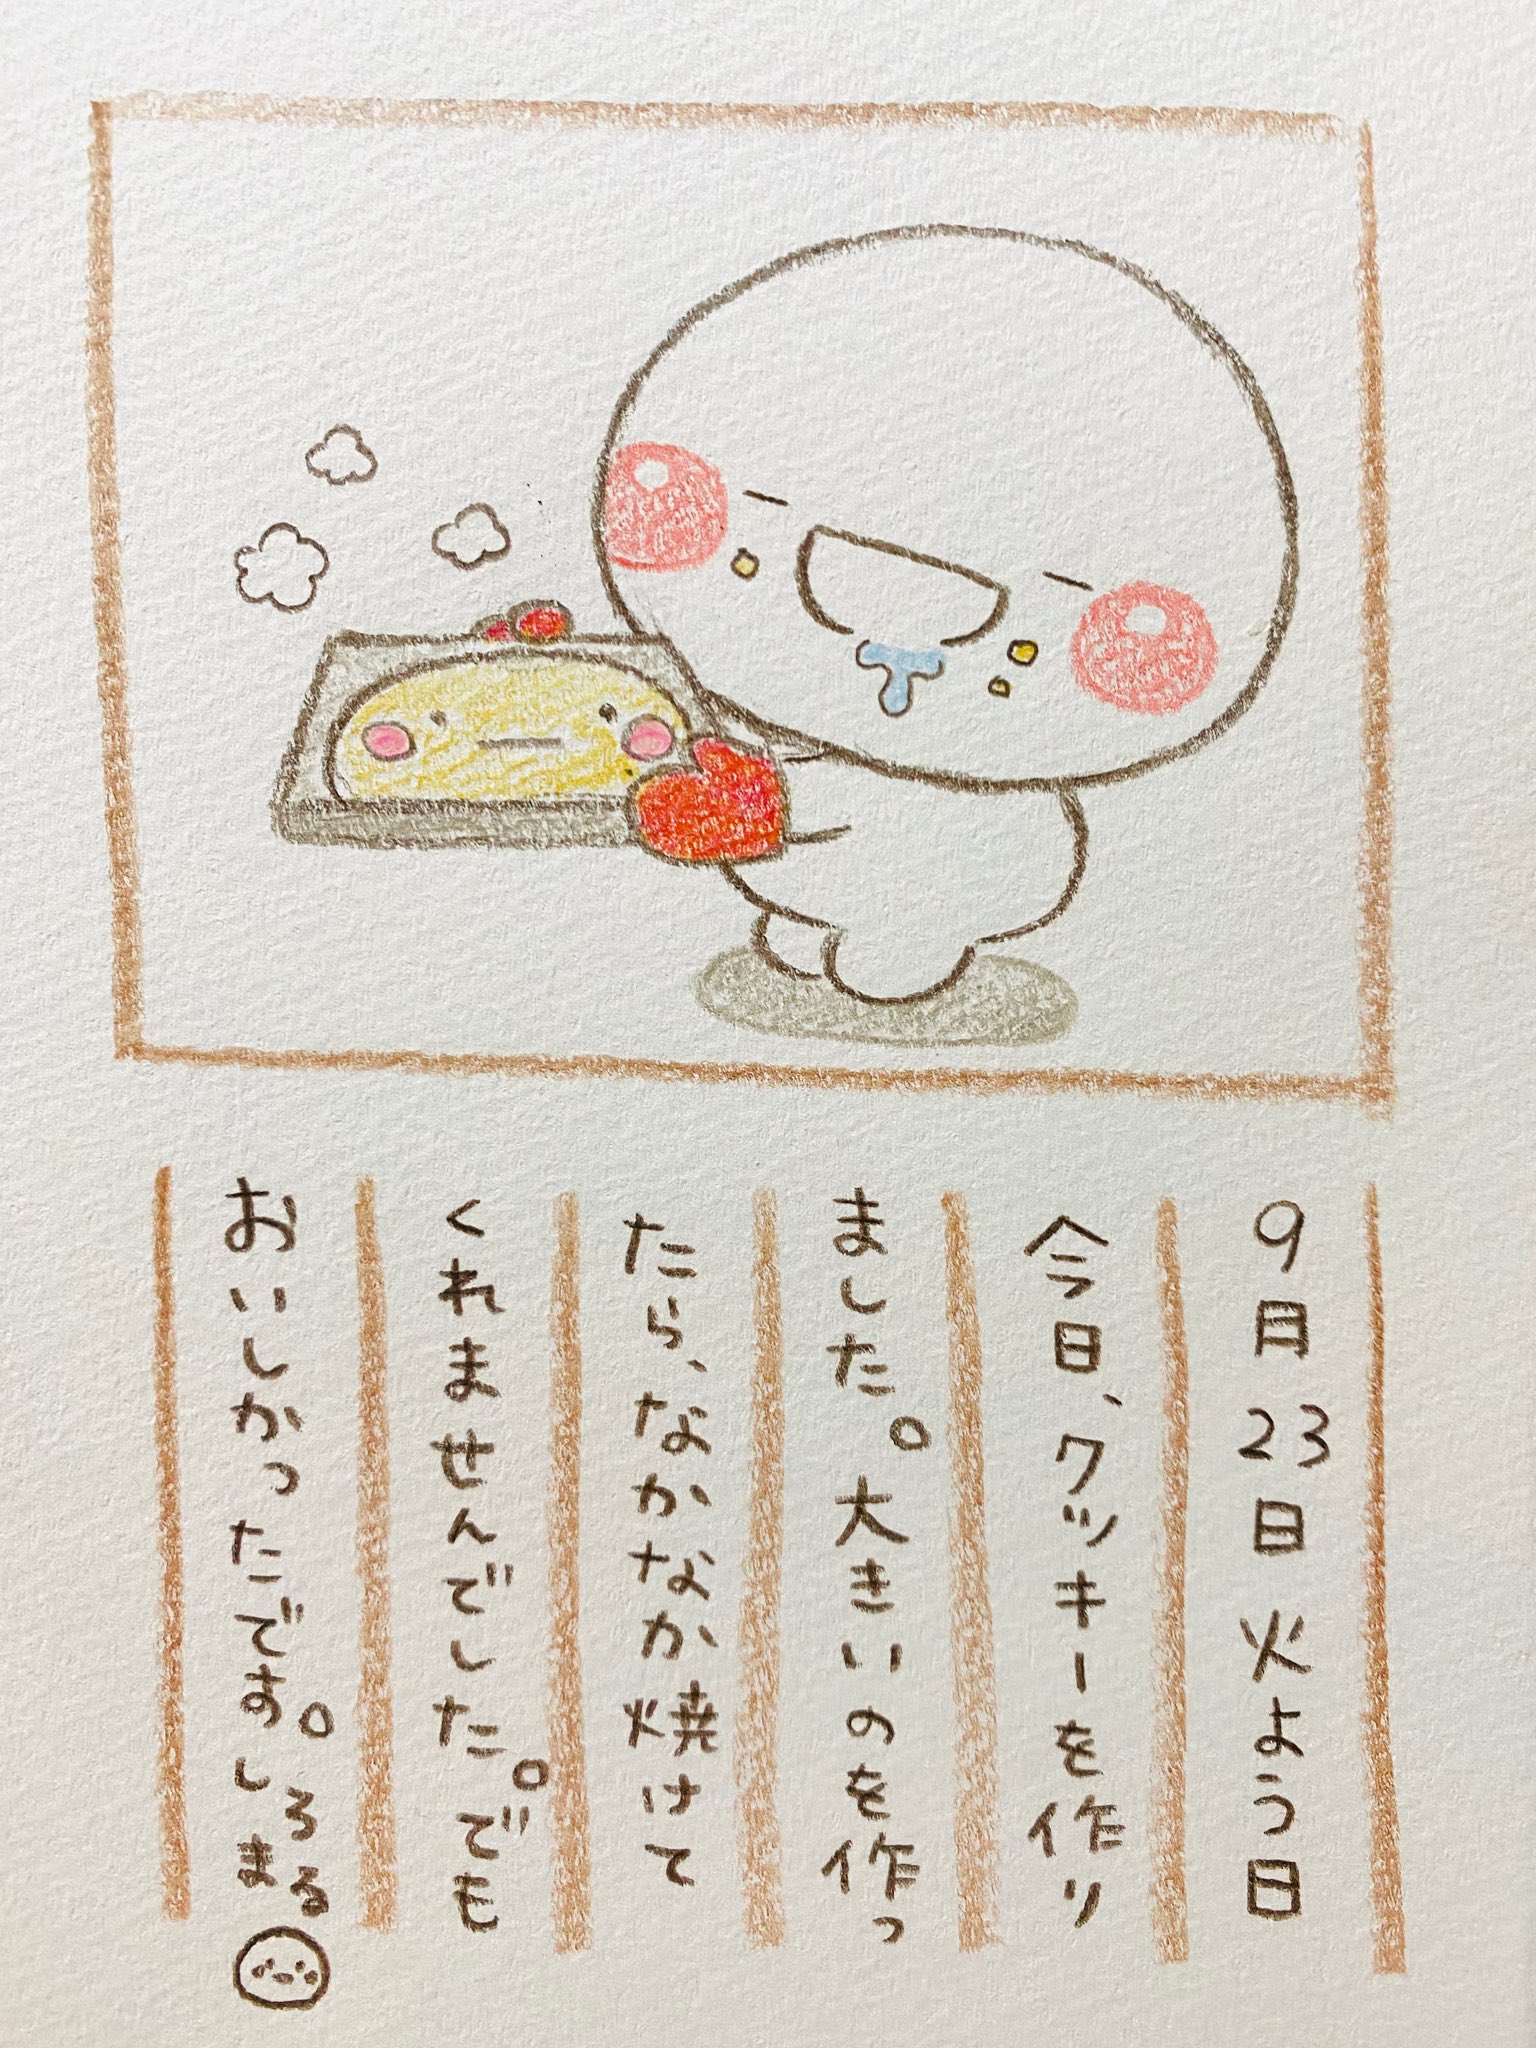 9月23日 火よう日
今日、クッキーを作り
ました。大きいのを作っ
たら、なかなか焼けて
くれませんでした。でも
おいしかったです。しろまる